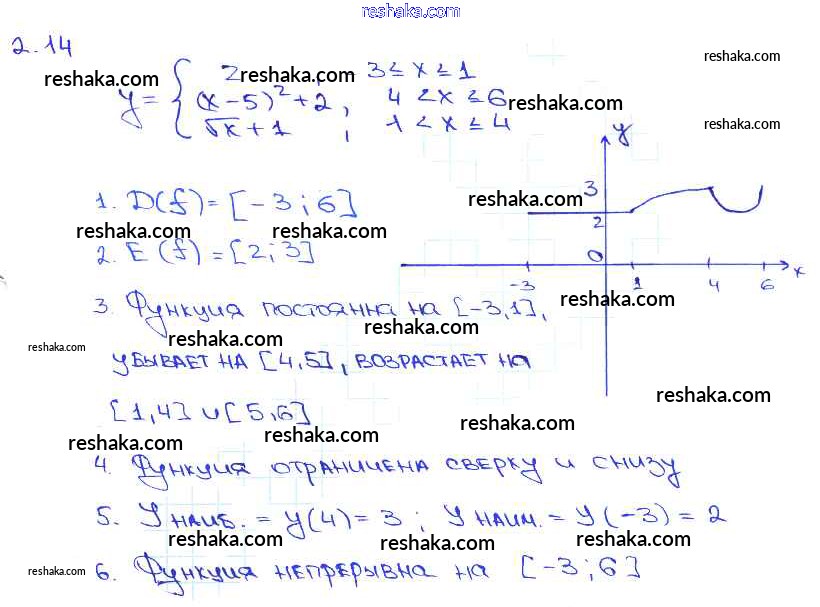 reshaka.com
2.14
y = { 2 reshaka.com 3 ≤ x ≤ 1
reshaka.com
(x - 5)² + 2, 4 < x ≤ 6 reshaka.com
√x + 1, 1 < x ≤ 4
reshaka.com
reshaka.com
y
3
2
0
-3 1 4 6 x
1. D(f) = [-3; 6]
reshaka.com
reshaka.com reshaka.com
2. E(f) = [2; 3]
3. Функция постоянна на [-3,1],
reshaka.com
reshaka.com reshaka.com
reshaka.com
убывает на [4,5], возрастает на
reshaka.com
[1,4] ∪ [5,6]
reshaka.com reshaka.com reshaka.com
4. Функция ограничена сверху и снизу
reshaka.com
5. y наиб. = y(4) = 3; y наим. = y(-3) = 2
reshaka.com reshaka.com reshaka.com
reshaka.com
6. Функция непрерывна на [-3; 6]